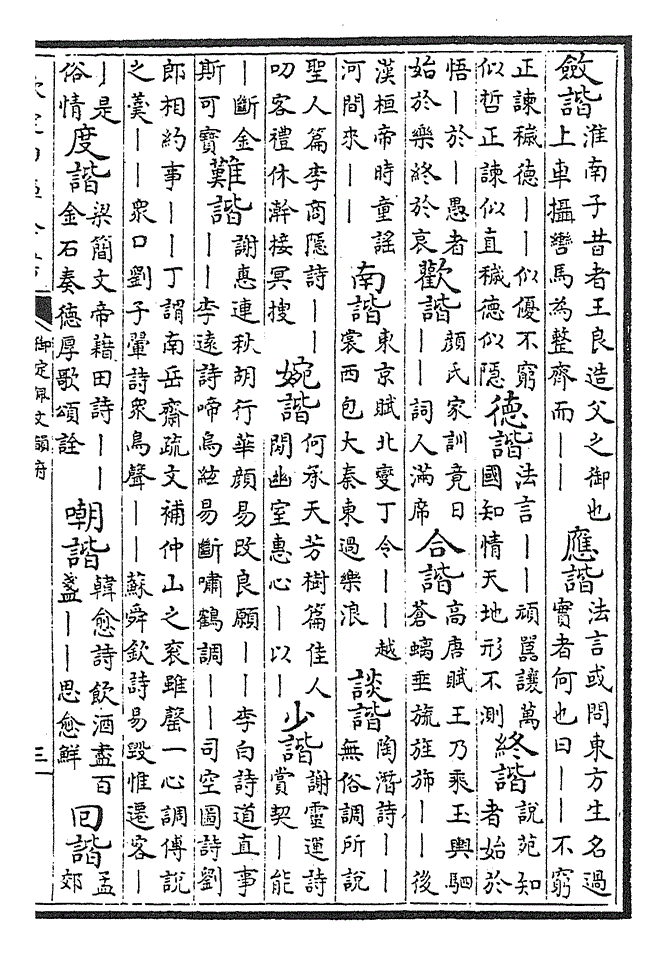 斂諧淮南子昔者王良造父之御也上車攝轡馬為整齊而｜｜應諧法言或問東方生名過實者何也曰｜｜不窮
正諫穢德｜｜似優不窮似哲正諫似直穢德似隱德諧法言｜｜頑嚚讓萬國知情天地形不測終諧說苑知者始於
悟｜於｜愚者始於樂終於哀歡諧顔氏家訓竟日｜｜詞人滿席合諧高唐賦王乃乘玉輿駟蒼螭垂旒旌斾｜｜後
漢桓帝時童謡河間來｜｜南諧東京賦北燮丁令｜｜越裳西包大秦東過樂浪談諧陶潛詩｜｜無俗調所說
聖人篇李商隱詩｜｜叨客禮休澣接冥搜婉諧何承天芳樹篇佳人閒幽室惠心｜以｜少諧謝靈運詩賞契｜｜能
｜斷金斯可寶難諧謝惠連秋胡行華顔易改良願｜｜李白詩道直事｜｜李遠詩啼烏絃易斷嘯鶴調｜｜司空圖詩劉
郎相約事｜｜丁謂南岳齋疏文補仲山之袞雖罄一心調傅說之羹｜｜衆口劉子翬詩衆鳥聲｜｜蘇舜欽詩易毀惟遷客｜
｜是俗情度諧梁簡文帝藉田詩｜｜金石奏德厚歌頌詮嘲諧韓愈詩飲酒盡百盞｜｜思愈鮮回諧孟郊
欽定四庫全書 御定佩文韻府 三